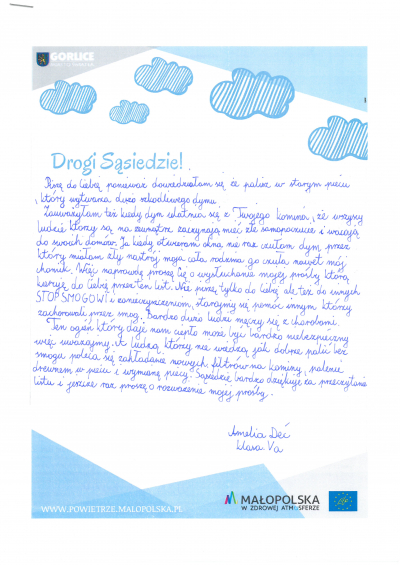 GORLICE
Drogi Sąsiedzie!
Piszę do Ciebie ponieważ dowiedziałam się, że palisz w starym piecu
który wytwarza dużo szkodliwego dymu.
Zauważyłam też kiedy dym ulatnia się z Twojego komina, że wszyscy
ludzie którzy są na zewnątrz zaczynają mieć złe samopoczucie i wracają
do swoich domów. Ja kiedy otwieram okna nie raz czułam dym przez
który miałam zły nastrój moja cała rodzina go czuła nawet mój
chomik. Więc naprawdę proszę Cię o wysłuchanie mojej prośby którą
kieruję do Ciebie przez ten list. Nie piszę tylko do Ciebie ale też do innych
STOP SMOGOWI i zanieczyszczeniom, starajmy się pomóc innym którzy
zachorowali przez smog. Bardzo dużo ludzi męczy się z chorobami.
Ten ogień który daje nam ciepło może być bardzo niebezpieczny
więc uważajmy. A ludzą którzy nie wiedzą jak dobrze palić bez
smogu poleca się zakładanie nowych filtrów na kominy, palenie
drewnem w piecu i wymianę piecy. Sąsiedzie bardzo dziękuję za przeczytanie
listu i jeszcze raz proszę o rozważenie mojej prośby.
Amelia Deć
klasa Va
WWW.POWIETRZE.MALOPOLSKA.PL
MAŁOPOLSKA
W ZDROWEJ ATMOSFERZE